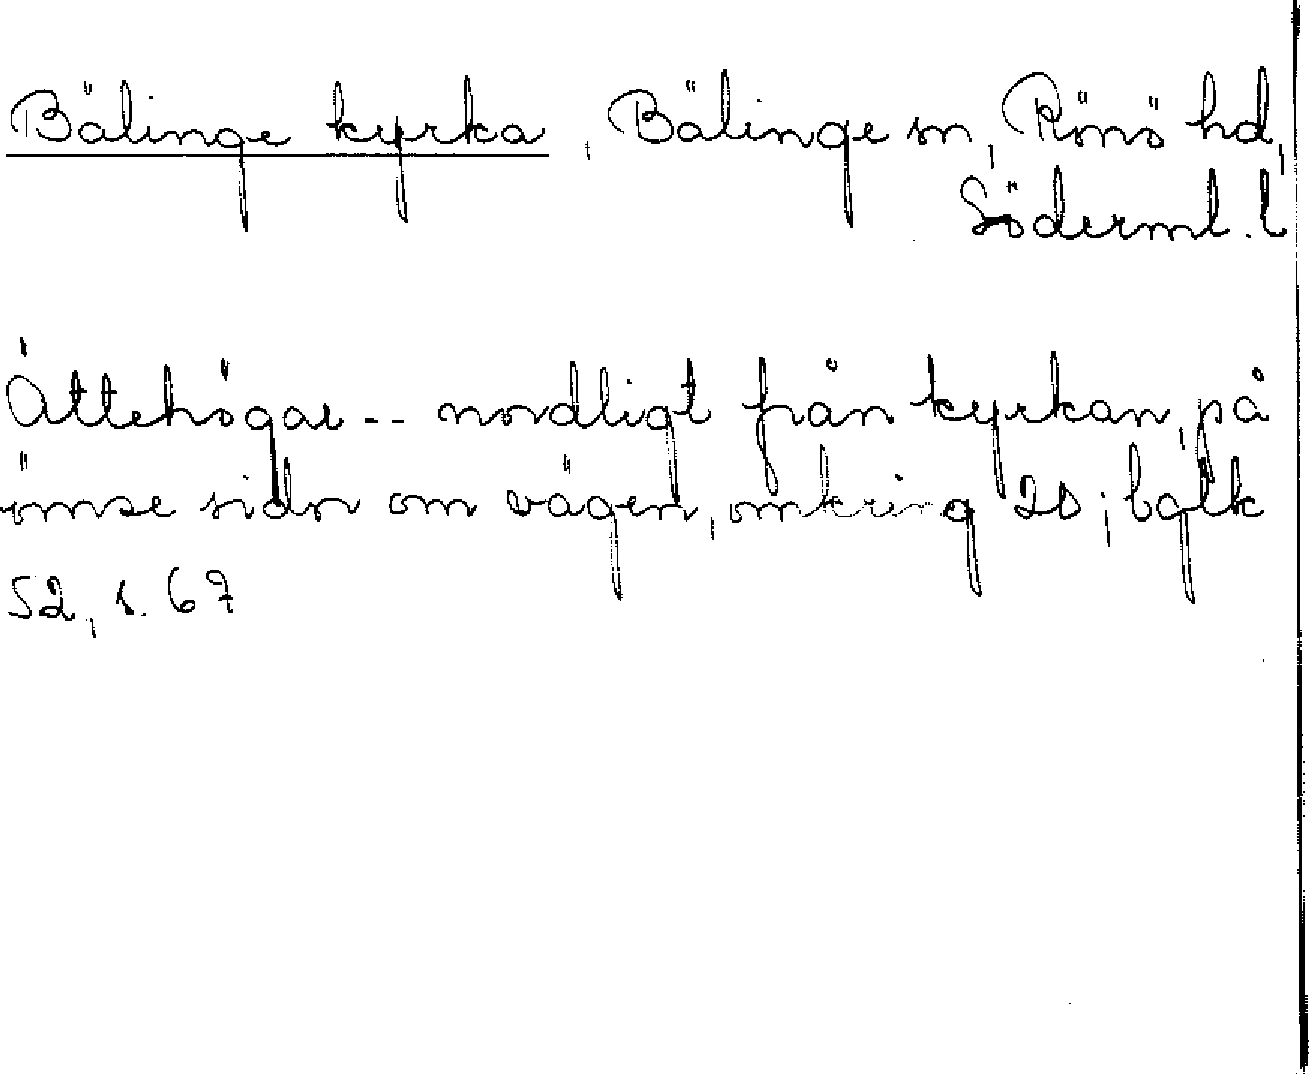 Bälinge kyrka, Bälinge sn, Rönö hd,
Söderml. l
Ättehögar -- nordligt från kyrkan, på
ömse sidor om vägen, omkring 20; bälk
52, s. 67